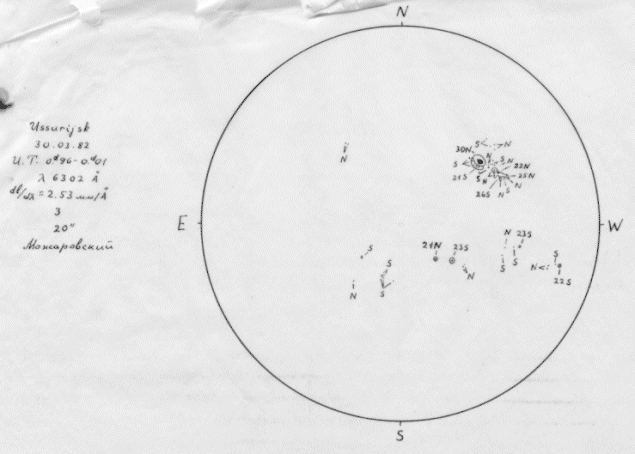 N
Ussurijsk
30.03.82
U.T. 0ᵈ96-0ᵈ01
λ 6302 Å
dl/dλ = 2.53 мм/Å
3
20"
Можаровский
E
W
S
S N
30N N
S S N 22N
21S S N 25N
26S N S N
N
S
21N 23S
N 23S
S
S
N
S
S
N
S S
N< S
22S